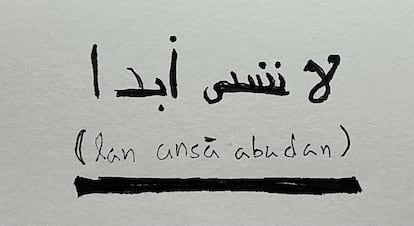 لا ننسى أبدا
(lan ansā abadan)